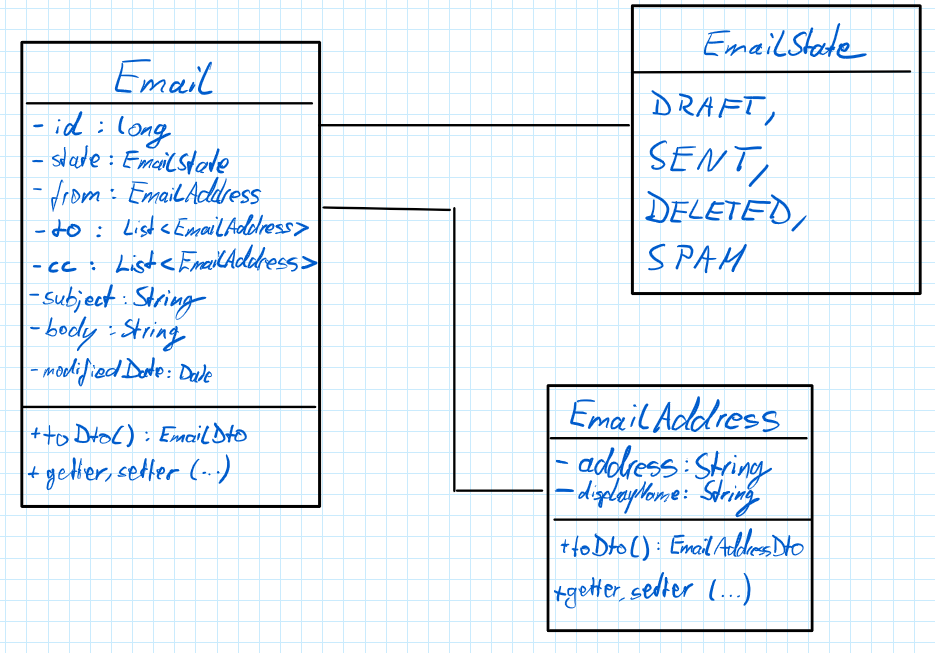 Email
- id : long
- state : EmailState
- from : EmailAddress
- to : List<EmailAddress>
- cc : List<EmailAddress>
- subject : String
- body : String
- modifiedDate : Date
+ toDto() : EmailDto
+ getter, setter (...)
EmailState
DRAFT,
SENT,
DELETED,
SPAM
EmailAddress
- address : String
- displayName : String
+ toDto() : EmailAddressDto
+ getter, setter (...)